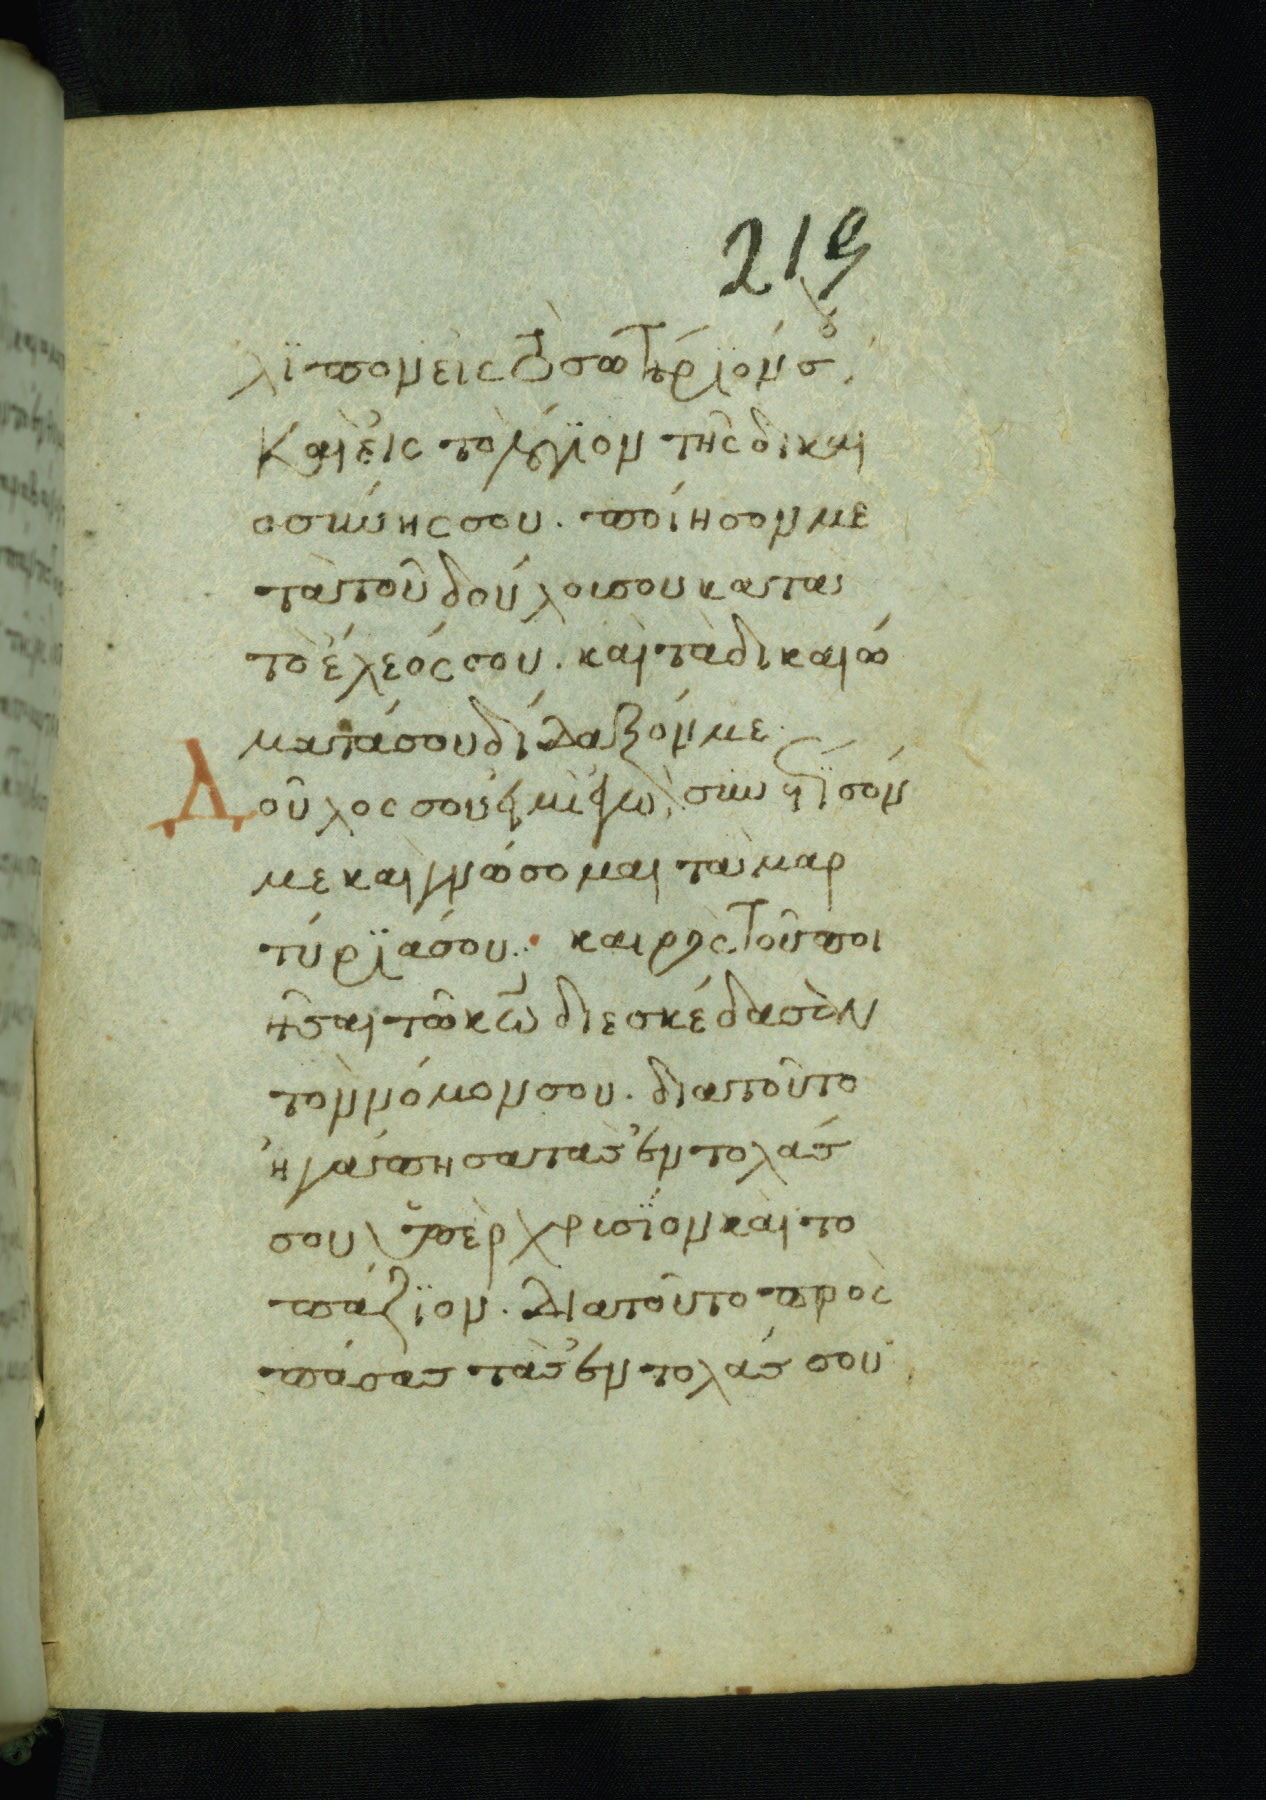 219
λϊπον εἰς τὸ σωτήριόν σου,
Καὶ εἰς τὸ λόγϊον τῆς δικαι
οσύνης σου. ποίησον με
τὰ τοῦ δούλου σου κατὰ
τὸ ἔλεός σου. καὶ τὰ δικαιώ
ματά σου δίδαξόν με.
Δοῦλος σού εἰμι ἐγώ, συνέτϊσόν
με καὶ γνώσομαι τὰ μαρ
τύρϊά σου. καιρὸς τοῦ ποι
ῆσαι τῶ κω διεσκέδασαν
τὸν νόμον σου. διατοῦτο
ἠγάπησα τὰς ἐντολάς
σου ὑπὲρ χρυσϊον καὶ το
πάζϊον. διατοῦτο πρὸς
πάσας τὰς ἐντολάς σου